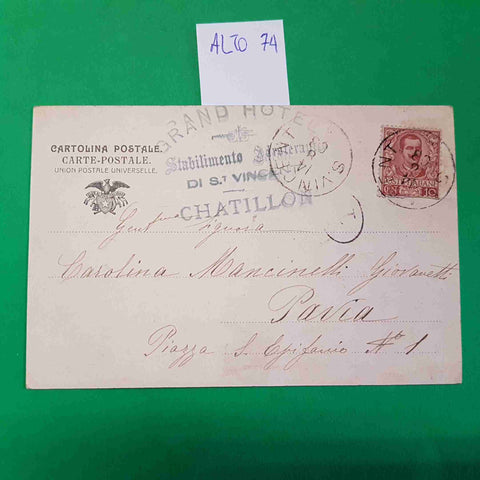 ALTO 74
GRAND HOTEL
Stabilimento
DI S.T VINCENT
CHATILLON
CARTOLINA POSTALE
CARTE-POSTALE.
UNION POSTALE UNIVERSELLE.
S. VINCENT
Gent.ma Signora
Carolina Mancinelli Giovanetti
Pavia
Piazza S. Epifanio No 1